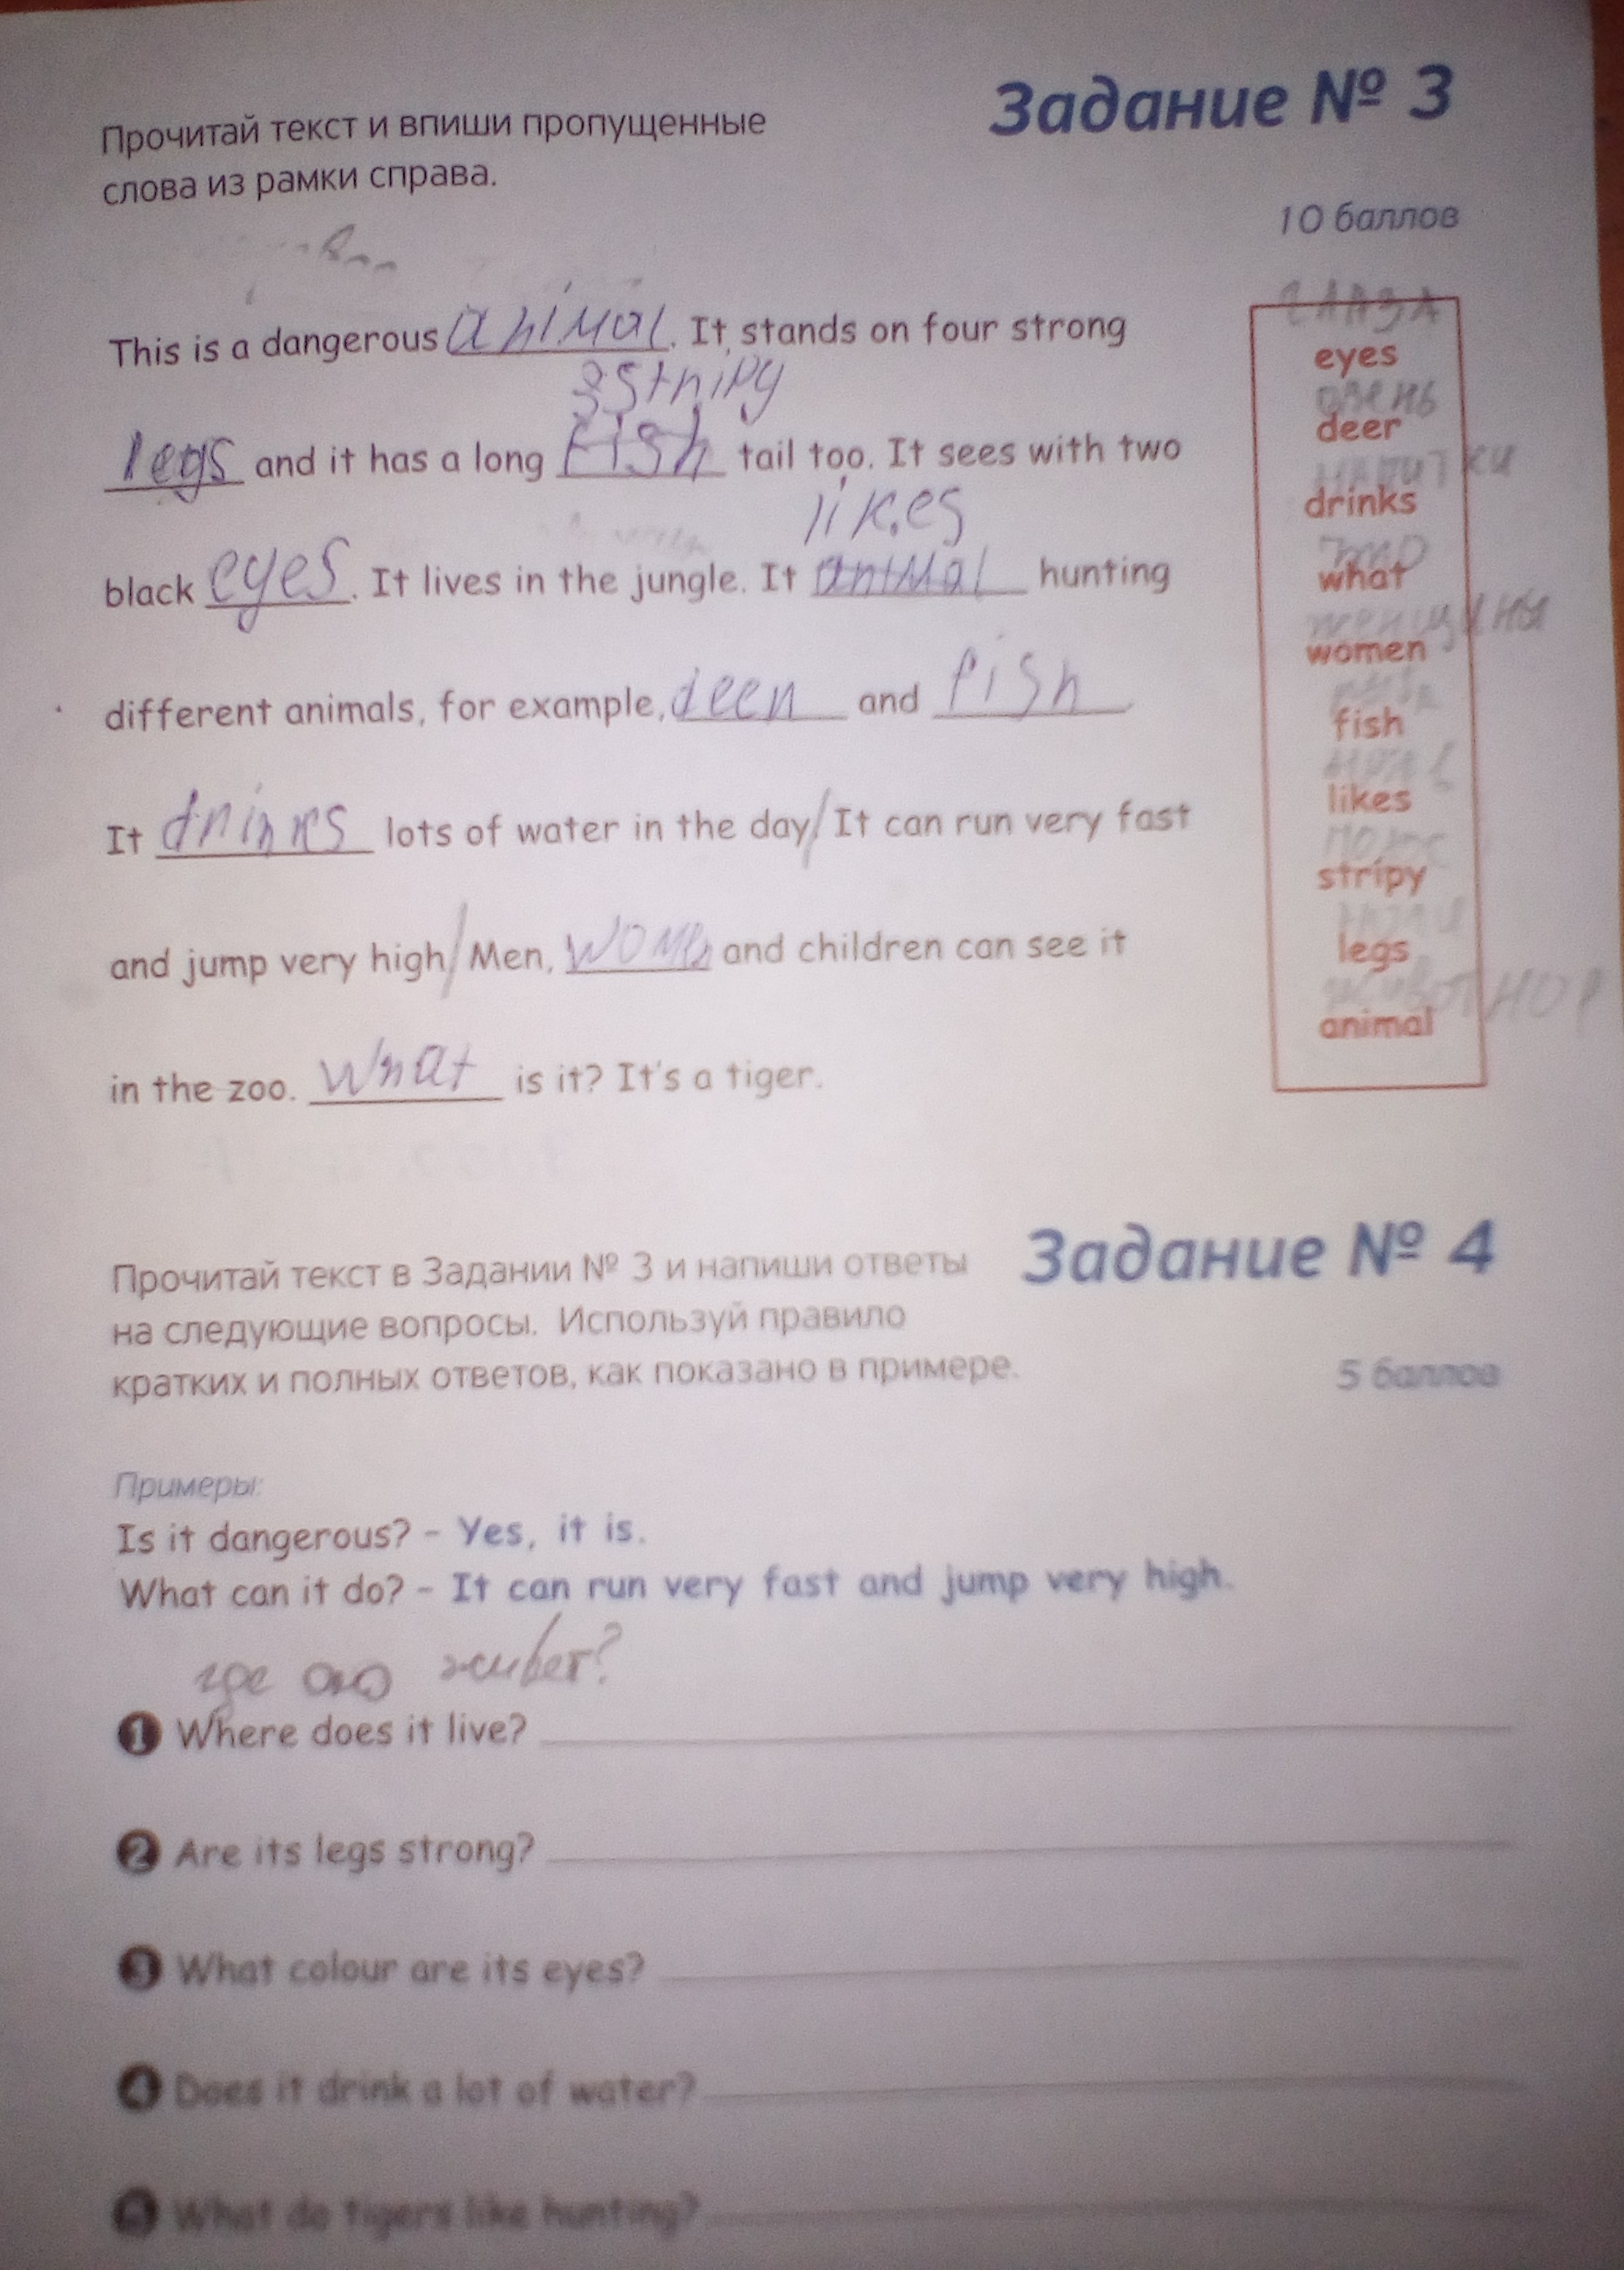 Задание № 3
Прочитай текст и впиши пропущенные
слова из рамки справа.
10 баллов
This is a dangerous animal. It stands on four strong
stripy
legs and it has a long fish tail too. It sees with two
likes
black eyes. It lives in the jungle. It animal hunting
different animals, for example, deer and fish
It drinks lots of water in the day/ It can run very fast
and jump very high/ Men, women and children can see it
in the zoo. what is it? It's a tiger.
глаза
eyes
олень
deer
напитки
drinks
что
what
женщины
women
fish
likes
полос
stripy
ноги
legs
животное
animal
Задание № 4
Прочитай текст в Задании № 3 и напиши ответы
на следующие вопросы. Используй правило
кратких и полных ответов, как показано в примере.
5 баллов
Примеры:
Is it dangerous? - Yes, it is.
What can it do? - It can run very fast and jump very high.
где оно живет?
1 Where does it live?
2 Are its legs strong?
3 What colour are its eyes?
4 Does it drink a lot of water?
5 What do tigers like hunting?